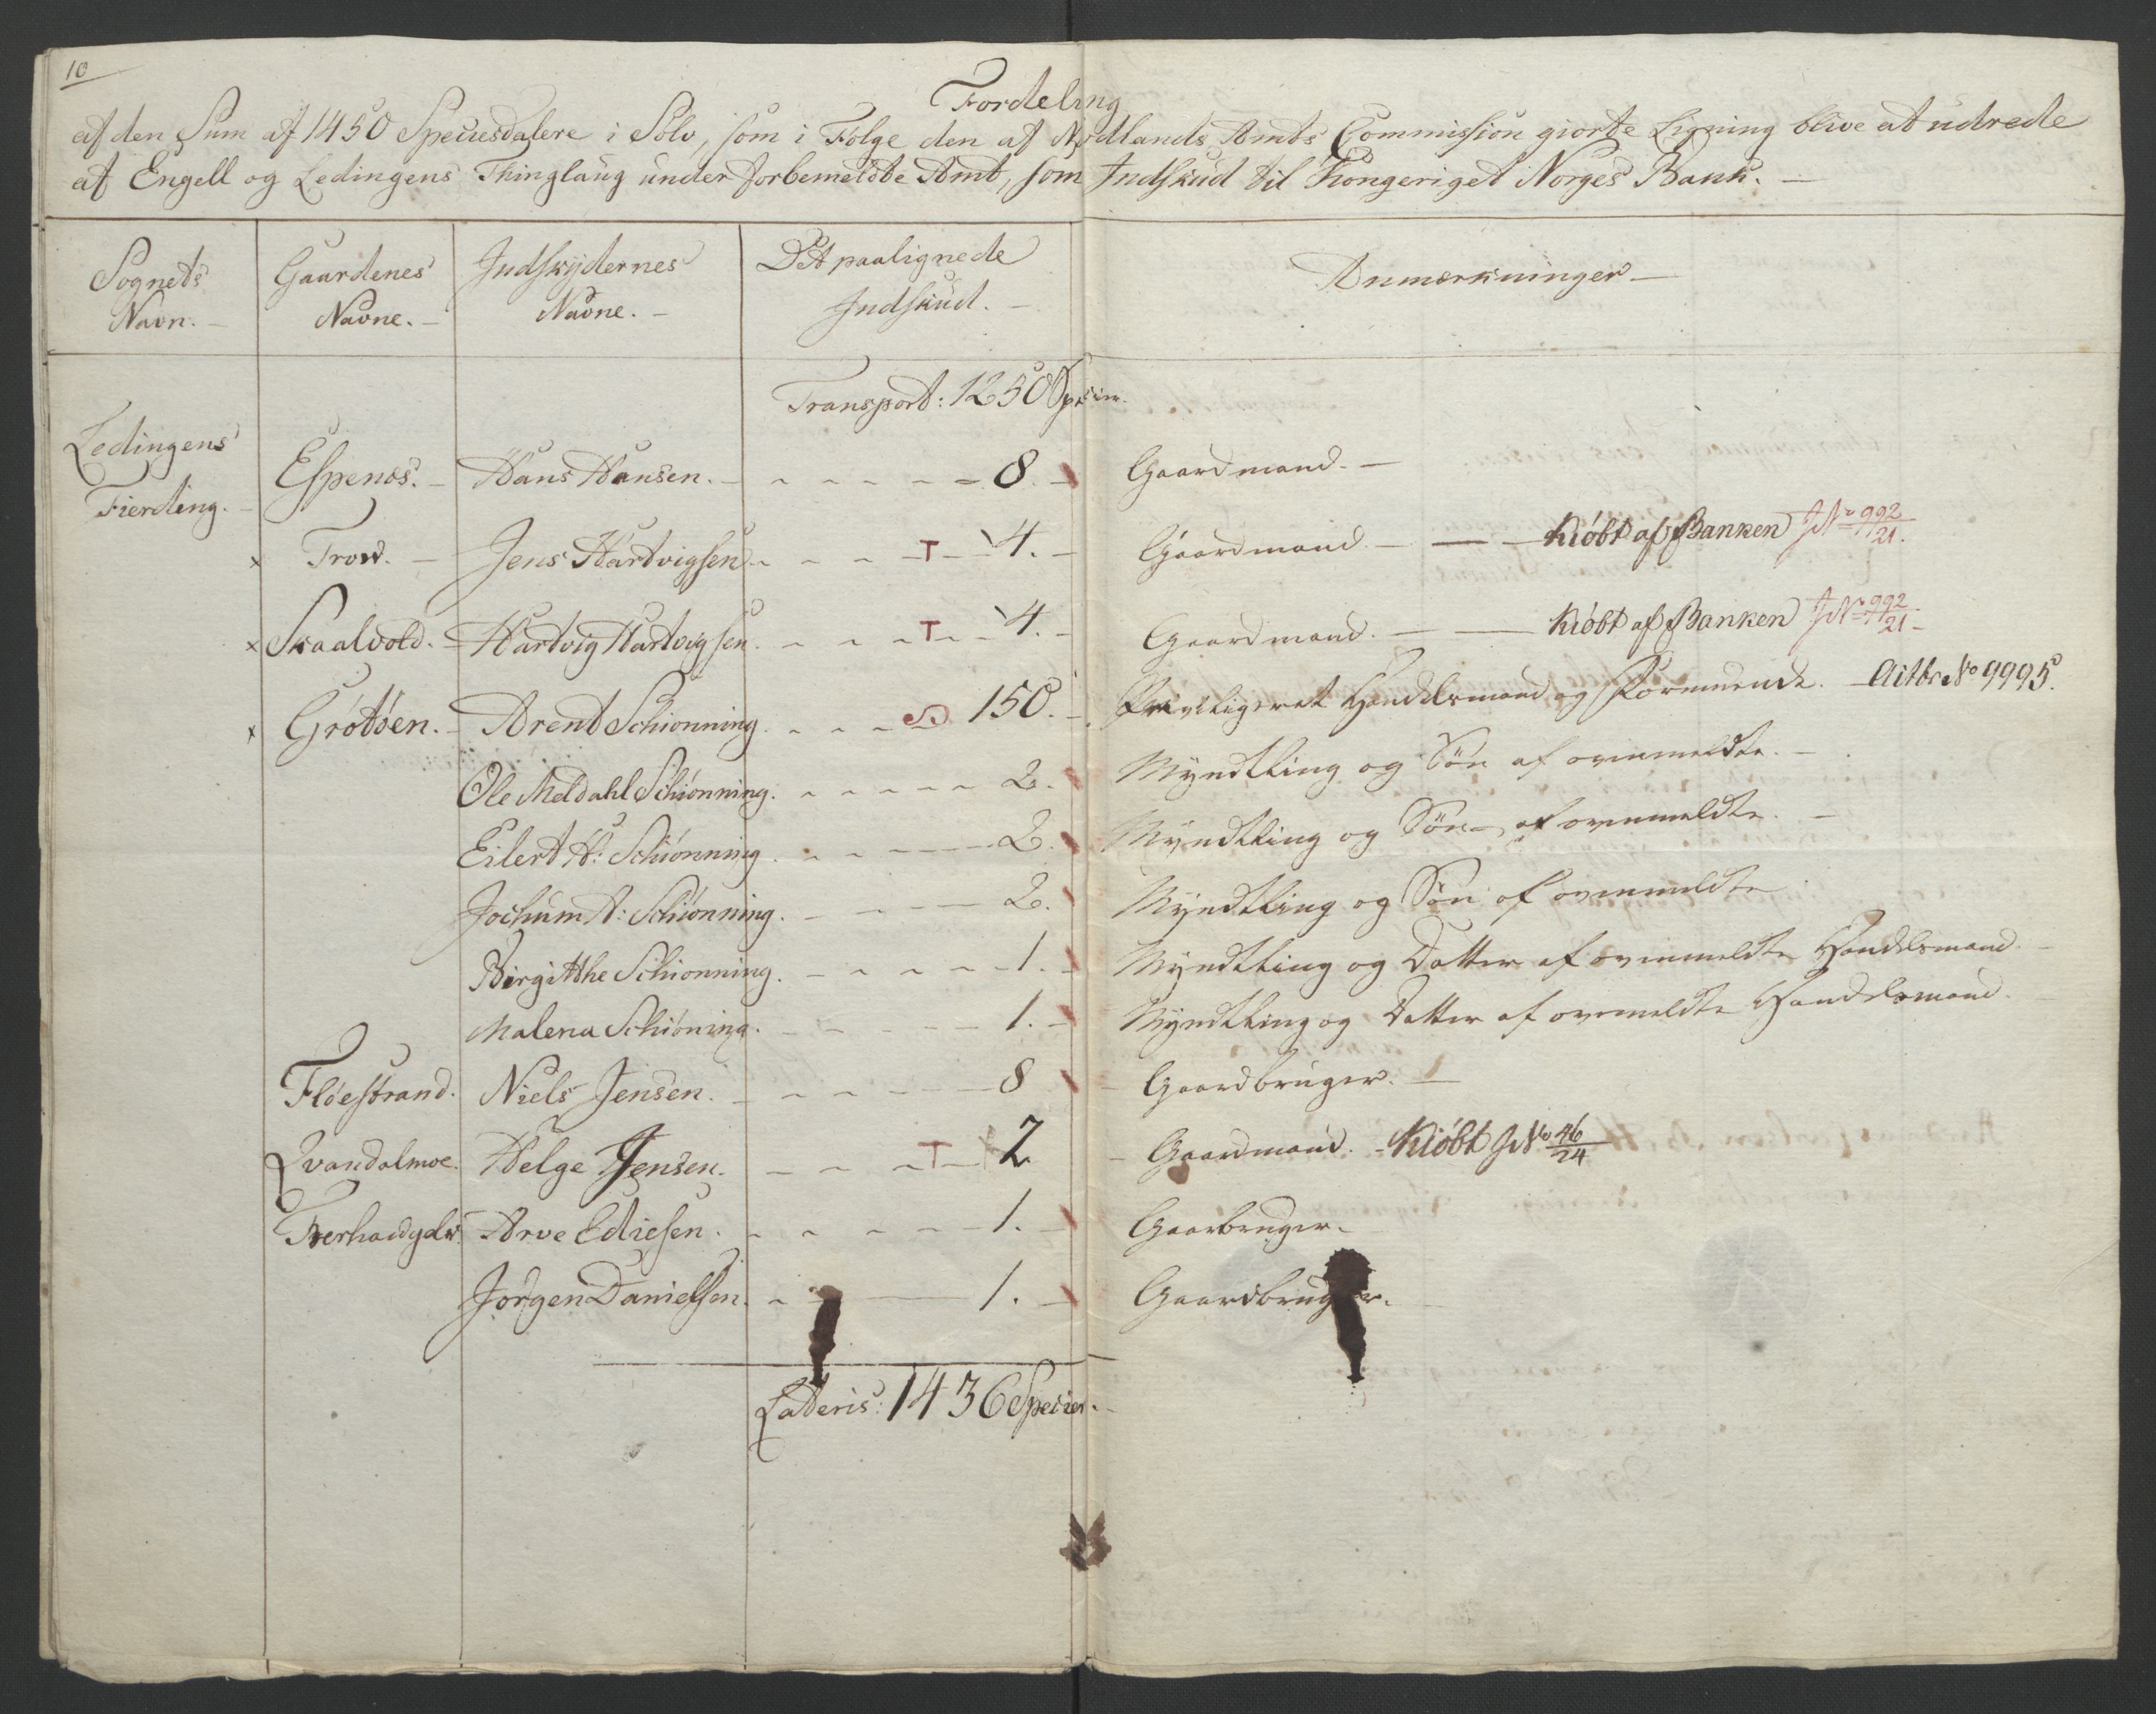 10
Fordeling
af den Sum af 1450 Speciesdalere i Sölv, som i Følge den af Nordlands Amts Commission giorte Ligning blive at udrede
af Engell og Ledingens Thinglaug under forbemeldte Amt, som Indskud til Kongeriget Norges Bank. —
Sognets Navn. — Gaardenes Navne. — Indskydernes Navne. — Det paalignede Indskud. — Anmerkninger —
Transport: 1250 Specier.
Ledingens Fierding. — Espenes. — Hans Hansen. — 8. — Gaardmand. —
x Trow. — Jens Hartvigsen — T — 4. — Gaardmand. — Kiöbt af Banken JNo 992/21.
x Skaalvold. — Hartvig Hartvigsen. T — 4. — Gaardmand. — Kiöbt af Banken JNo 992/21 —
x Grötöen. — Arent Schiönning. 150. — Priviligeret Handelsmand og Formund. — No 9995.
Ole Meldahl Schiönning. 2. Myndtling og Sön af ovenmeldte. —
Eilert A: Schiönning. 2. Myndtling og Sön af ovenmeldte. —
Jochum A: Schiönning. — 2. Myndtling og Sön af ovenmeldte
Birgitthe Schiönning. — 1. — Myndtling og Datter af ovenmeldte Handelsmand. —
Malena Schiöning. — 1. — Myndtling og Datter af ovenmeldte Handelsmand. —
Flöestrand. Niels Jensen. — 8 — Gaardbruger. —
Qvandalmoe. Helge Jensen. — T — 2 — Gaardmand. — Kiöbt JNo 46/24
Arve Ediesen. 1. — Gaarbruger.
Jörgen Danielsen. — 1. — Gaardbruger. —
Lateris: 1436 Specier. —